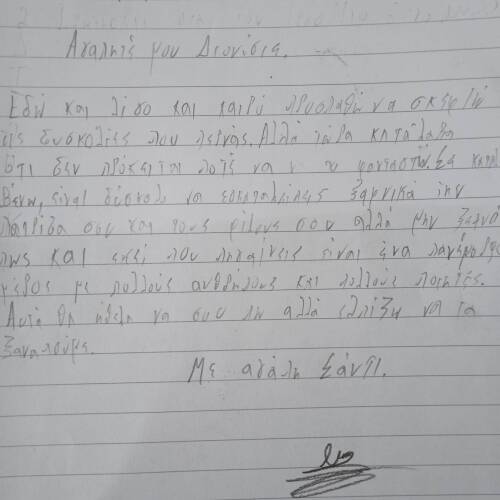 Αγαπητέ μου Διονύσιε,
Εδώ και λίγο και καιρό προσπαθώ να σκεφτώ
τις δυσκολίες που περνάς. Αλλά τώρα κατάλαβα
ότι δεν πρόκειται ποτές να το φανταστώ. Σε κατα
βένω, είναι δύσκολο να εγκαταλείπεις ξαφνικά την
πατρίδα σου και τους φίλους σου αλλά μην ξεχνά
πως και εκεί που πηγαίνεις είναι ένα πανέμορφο
μέρος με πολλούς ανθρώπους και πολλούς ποιητές.
Αυτά θα ήθελα να σου πω αλλά ελπίζω να τα
ξαναπούμε.
Με αγάπη Σάντι.